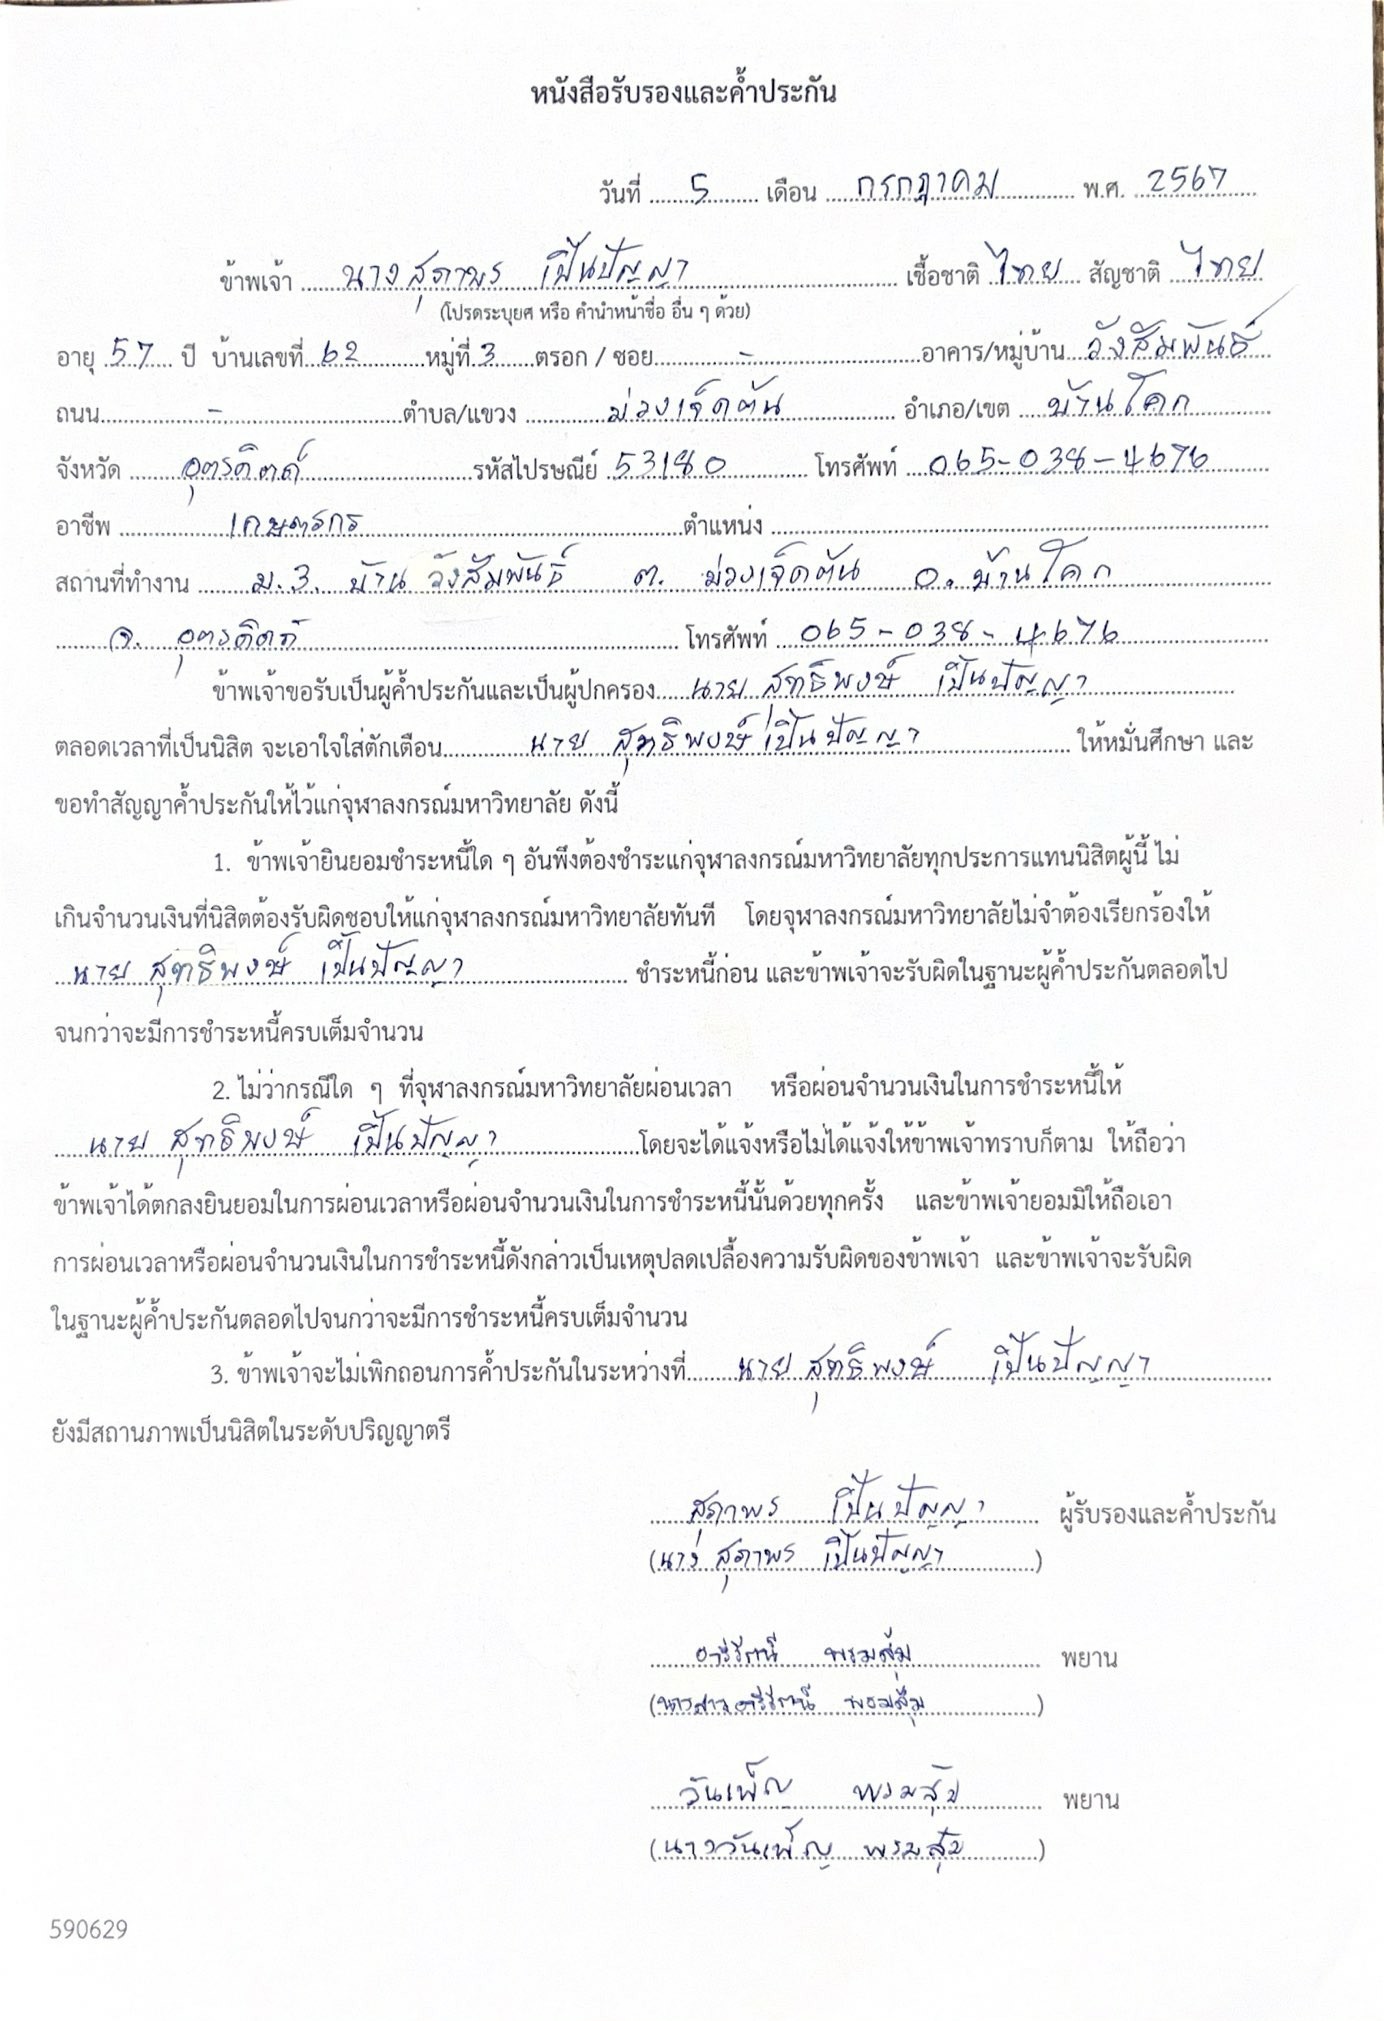 หนังสือรับรองและค้ำประกัน
วันที่ ..... 5 ..... เดือน ..... กรกฎาคม ..... พ.ศ. ..... 2567 .....
ข้าพเจ้า ..... นางสุภาพร เปี้นปัญญา ..... เชื้อชาติ ไทย สัญชาติ ไทย
(โปรดระบุยศ หรือ คำนำหน้าชื่อ อื่น ๆ ด้วย)
อายุ 57 ปี บ้านเลขที่ 62 หมู่ที่ 3 ตรอก / ซอย ..... - ..... อาคาร/หมู่บ้าน วังสัมพันธ์
ถนน ..... - ..... ตำบล/แขวง ..... ม่วงเจ็ดต้น ..... อำเภอ/เขต ..... บ้านโคก
จังหวัด ..... อุตรดิตถ์ ..... รหัสไปรษณีย์ 53180 ..... โทรศัพท์ 065-038-4676
อาชีพ ..... เกษตรกร ..... ตำแหน่ง .....
สถานที่ทำงาน ..... ม.3. บ้าน วังสัมพันธ์ ต. ม่วงเจ็ดต้น อ. บ้านโคก
จ. อุตรดิตถ์ ..... โทรศัพท์ 065-038-4676
ข้าพเจ้าขอรับเป็นผู้ค้ำประกันและเป็นผู้ปกครอง ..... นาย สุทธิพงษ์ เปี้นปัญญา .....
ตลอดเวลาที่เป็นนิสิต จะเอาใจใส่ตักเตือน ..... นาย สุทธิพงษ์ เปี้นปัญญา ..... ให้หมั่นศึกษา และ
ขอทำสัญญาค้ำประกันให้ไว้แก่จุฬาลงกรณ์มหาวิทยาลัย ดังนี้
1. ข้าพเจ้ายินยอมชำระหนี้ใด ๆ อันพึงต้องชำระแก่จุฬาลงกรณ์มหาวิทยาลัยทุกประการแทนนิสิตผู้นี้ ไม่
เกินจำนวนเงินที่นิสิตต้องรับผิดชอบให้แก่จุฬาลงกรณ์มหาวิทยาลัยทันที โดยจุฬาลงกรณ์มหาวิทยาลัยไม่จำต้องเรียกร้องให้
นาย สุทธิพงษ์ เปี้นปัญญา ..... ชำระหนี้ก่อน และข้าพเจ้าจะรับผิดในฐานะผู้ค้ำประกันตลอดไป
จนกว่าจะมีการชำระหนี้ครบเต็มจำนวน
2. ไม่ว่ากรณีใด ๆ ที่จุฬาลงกรณ์มหาวิทยาลัยผ่อนเวลา หรือผ่อนจำนวนเงินในการชำระหนี้ให้
นาย สุทธิพงษ์ เปี้นปัญญา ..... โดยจะได้แจ้งหรือไม่ได้แจ้งให้ข้าพเจ้าทราบก็ตาม ให้ถือว่า
ข้าพเจ้าได้ตกลงยินยอมในการผ่อนเวลาหรือผ่อนจำนวนเงินในการชำระหนี้นั้นด้วยทุกครั้ง และข้าพเจ้ายอมมิให้ถือเอา
การผ่อนเวลาหรือผ่อนจำนวนเงินในการชำระหนี้ดังกล่าวเป็นเหตุปลดเปลื้องความรับผิดของข้าพเจ้า และข้าพเจ้าจะรับผิด
ในฐานะผู้ค้ำประกันตลอดไปจนกว่าจะมีการชำระหนี้ครบเต็มจำนวน
3. ข้าพเจ้าจะไม่เพิกถอนการค้ำประกันในระหว่างที่ ..... นาย สุทธิพงษ์ เปี้นปัญญา .....
ยังมีสถานภาพเป็นนิสิตในระดับปริญญาตรี
สุภาพร เปี้นปัญญา ผู้รับรองและค้ำประกัน
(นาง สุภาพร เปี้นปัญญา)
อารีรัตน์ พรมสุ่ม พยาน
(นางสาวอารีรัตน์ พรมสุ่ม)
วันเพ็ญ พรมสุ่ม พยาน
(นางวันเพ็ญ พรมสุ่ม)
590629